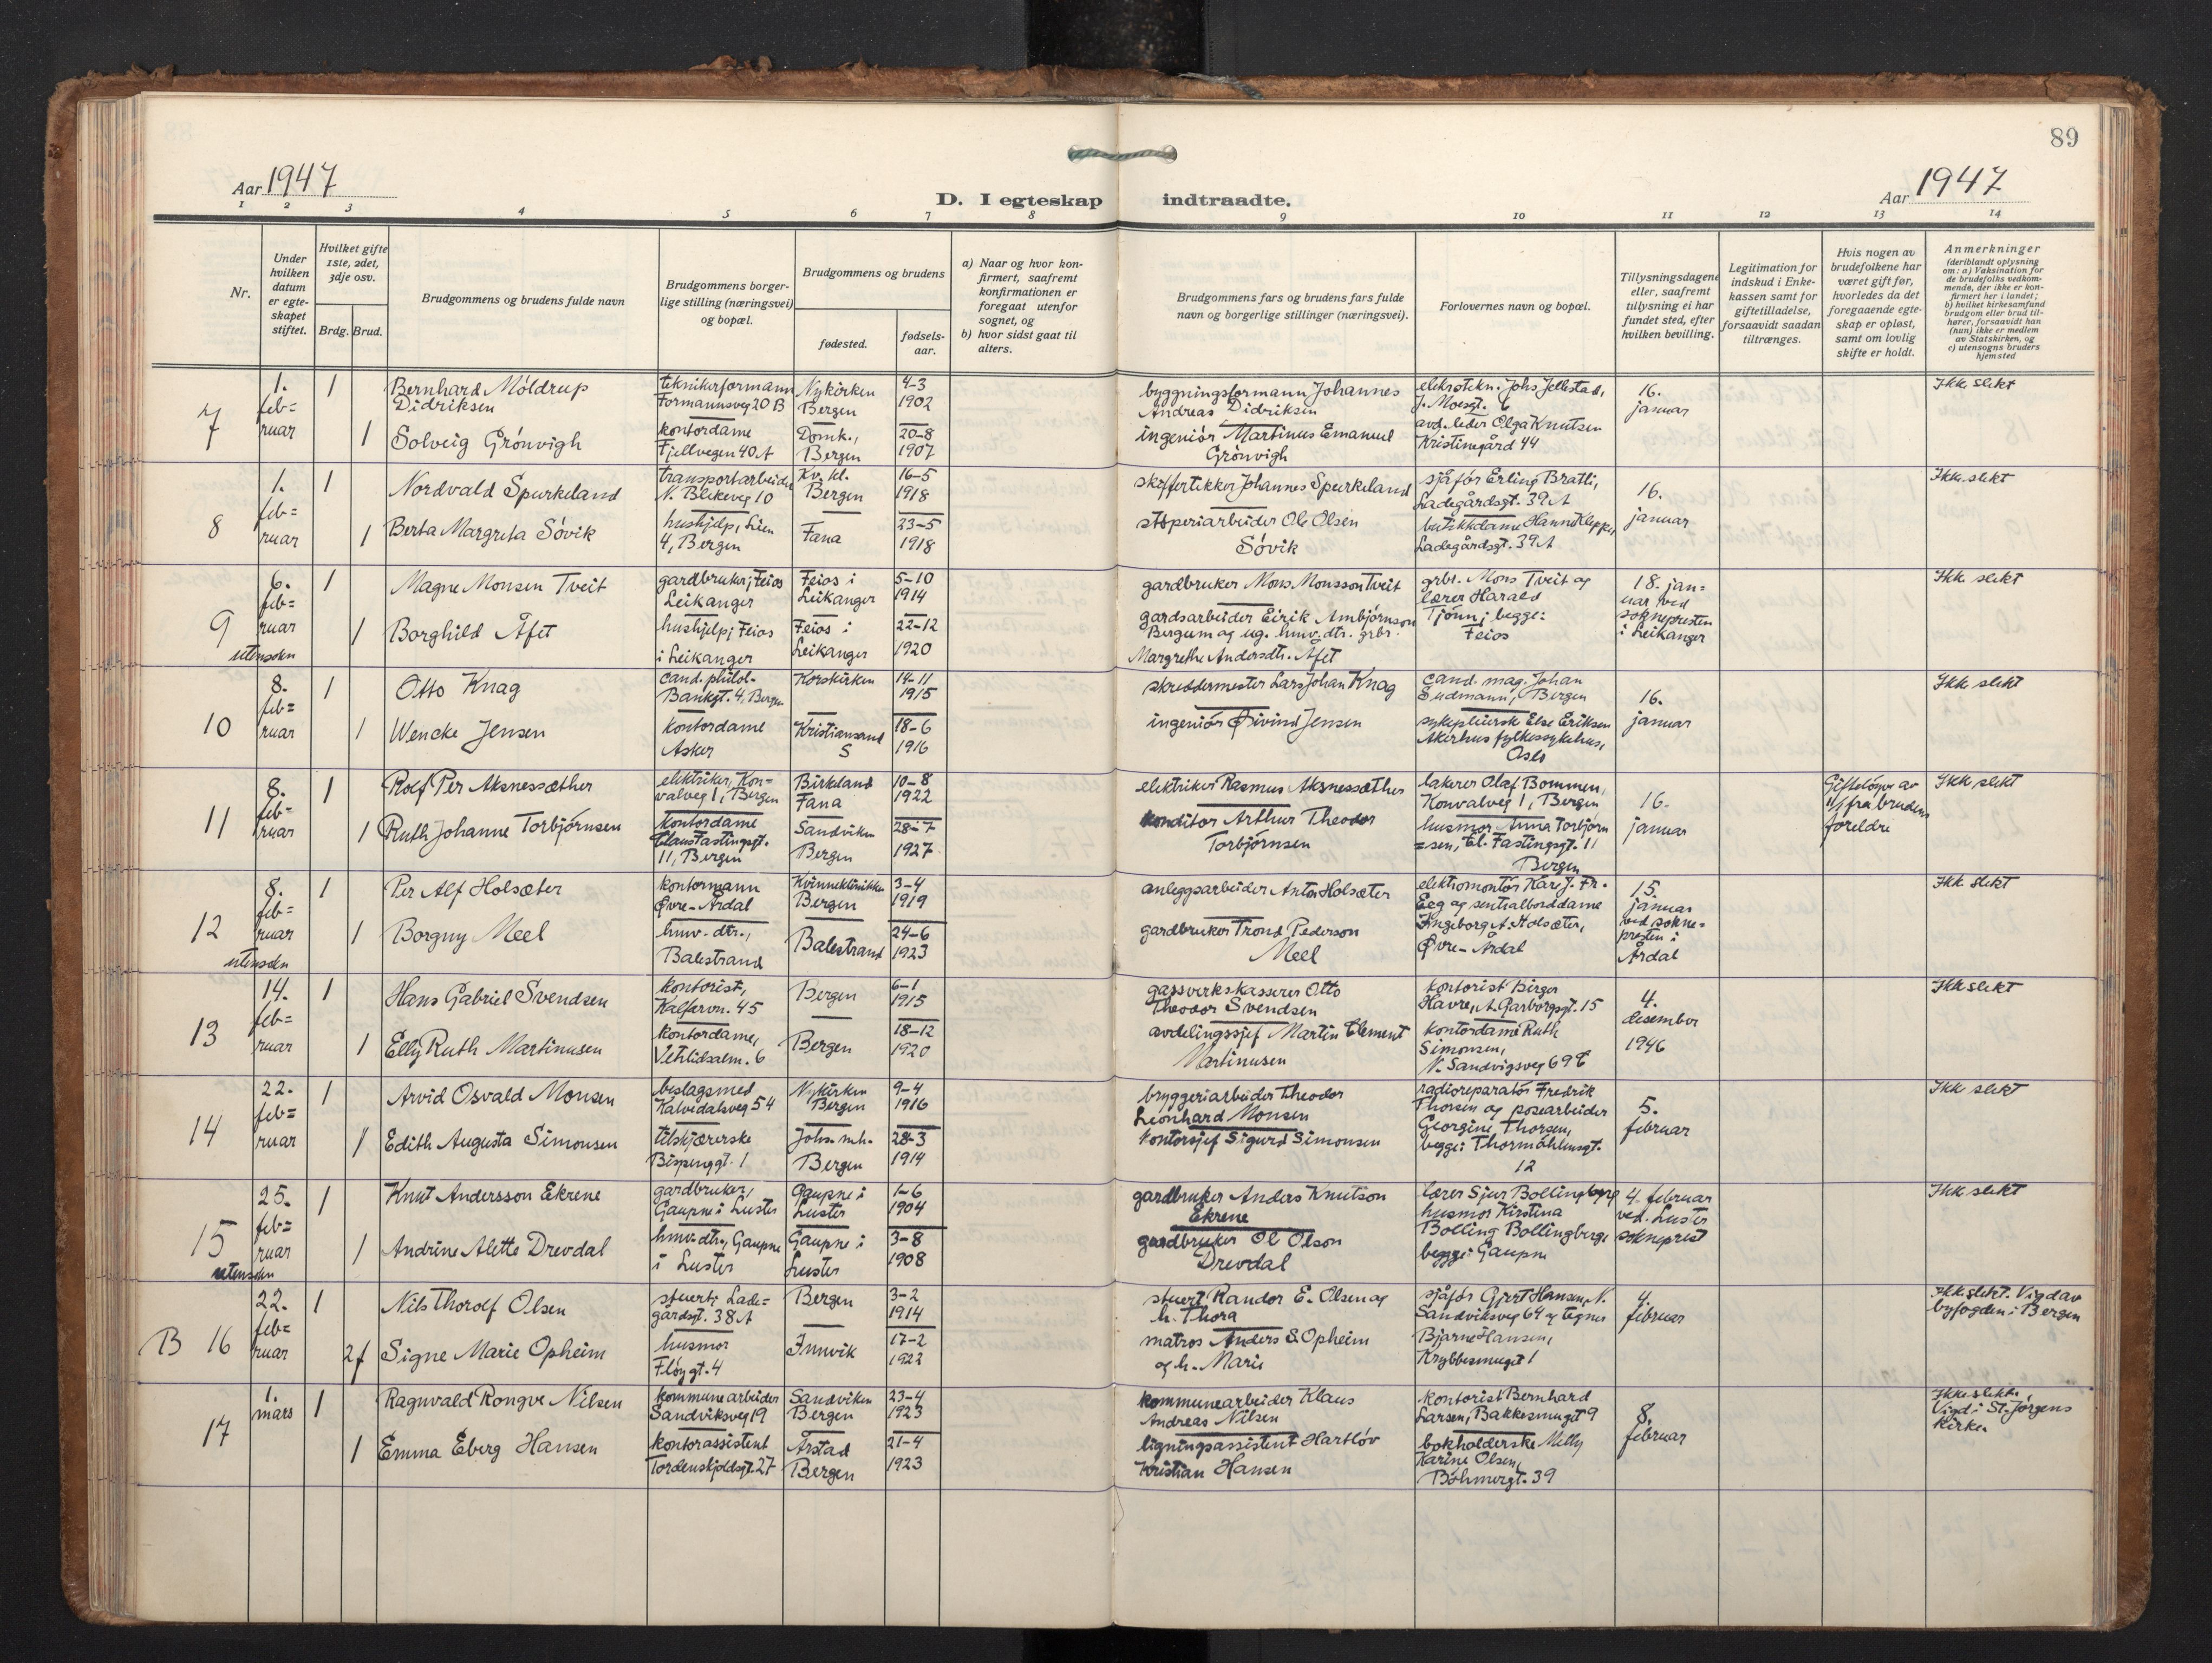 89
Aar 1947
D. I egteskap indtraadte.
Aar 1947
1 2 3 4 5 6 7 8 9 10 11 12 13 14
Nr.
Under hvilken datum er egteskapet stiftet.
Hvilket gifte 1ste, 2det, 3dje osv.
Brdg. Brud.
Brudgommens og brudens fulde navn
Brudgommens borgerlige stilling (næringsvei) og bopæl.
Brudgommens og brudens
fødested.
fødselsaar.
a) Naar og hvor konfirmert, saafremt konfirmationen er foregaat utenfor sognet, og
b) hvor sidst gaat til alters.
Brudgommens fars og brudens fars fulde navn og borgerlige stillinger (næringsvei).
Forlovernes navn og bopæl.
Tillysningsdagene eller, saafremt tillysning ei har fundet sted, efter hvilken bevilling.
Legitimation for indskud i Enkekassen samt for giftetilladelse, forsaavidt saadan tiltrænges.
Hvis nogen av brudefolkene har været gift før, hvorledes da det foregaaende egteskap er opløst, samt om lovlig skifte er holdt.
Anmerkninger
(deriblandt oplysning om: a) Vaksination for de brudefolks vedkommende, der ikke er konfirmert her i landet;
b) hvilket kirkesamfund brudgom eller brud tilhører, forsaavidt han (hun) ikke er medlem av Statskirken, og
c) utensogns bruders hjemsted
7
1. feb=ruar
1
Bernhard Möldrup Didriksen
teknikerformann Formannsveg 20 B
Nykirken Bergen
4-3 1902
byggningsformann Johannes Andreas Didriksen
elektrotekn. Johs Jellestad, J. Moesgt. 6
16. januar
Ikk slekt
1
Solveig Grönvigh
kontordame Fjellvegen 40 A
Domk., Bergen
20-8 1907
ingeniör Martinus Emanuel Grönvigh
avd. leder Olga Knutsen Kristinegård 44
8
1. feb=ruar
1
Nordvald Spurkeland
transportarbeider N. Blekeveg 10
Kv. kl. Bergen
16-5 1918
skiffertekker Johannes Spurkeland
sjåför Erling Bratli, Ladegårdsgt. 39 A
16. januar
Ikk. slekt
1
Berta Margreta Sövik
hushjelp, Lien 4, Bergen
Fana
23-5 1918
støperiarbeider Ole Olsen Sövik
butikkdame Hanne Kleppe, Ladegårdsgt. 39 A
9
utensokn
6. feb=ruar
1
Magne Monsen Tveit
gardbruker, Feios Leikanger
Feios i Leikanger
5-10 1914
gardbruker Mons Monsson Tveit
grbr. Mons Tveit og lærer Harald Tjönn, begge: Feios
18. jan=uar ved soknepresten i Leikanger
Ikk slekt
1
Borghild Åfet
hushjelp, Feios i Leikanger
Feios i Leikanger
22-12 1920
gardsarbeider Eirik Ambjörnson Bergum og ug. hmv. dtr. grbr. Margrethe Andersdtr. Afet
10
8. feb=ruar
1
Otto Knag
cand. philol. Bankgt. 4, Bergen
Korskirken
14-11 1915
skreddermester Lars Johan Knag
cand. mag. Johan Sudmann, Bergen
16. januar
Ikk slekt
1
Wencke Jensen
kontordame Asker
Kristiansand S
18-6 1916
ingeniör Øivind Jensen
sykepleierske Else Eriksen Akerhus fylkessykehus, Oslo
11
8. feb=ruar
1
Rolf Per Aksnessæther
elektriker, Kon=valveg 1, Bergen
Birkeland Fana
10-8 1922
elektriker Rasmus Aksnessæther
lakerer Olaf Bommen, Konvalveg 1, Bergen
16. januar
Giftelöyve av 11/1 fra brudens foreldre
Ikk slekt
1
Ruth Johanne Torbjörnsen
kontordame Claus Fastingsgt. 11, Bergen
Sandviken Bergen
28-7 1927
konditor Arthur Theodor Torbjörnsen
husmor Anna Torbjörn=sen, Cl. Fastingsgt. 11 Bergen
12
utensokn
8. feb=ruar
1
Per Alf Holsæter
kontormann Øvre-Årdal
Kvinneklinikken Bergen
3-4 1919
anleggsarbeider Anton Holsæter
elektromontör Kare J. Fr. Eeg og sentralborddame Ingeborg A. Holsæter, Øvre-Årdal
15. januar ved sokne=presten i Årdal
Ikk slekt
1
Borgny Meel
hmv. dtr., Balestrand
Balestrand
24-6 1923
gardbruker Trond Pederson Meel
13
14. feb=ruar
1
Hans Gabriel Svendsen
kontorist, Kalfarvn. 45
Bergen
6-1 1915
gassverkskasserer Otto Theodor Svendsen
kontorist Birger Havre, A. Garborgsgt. 15
4. desember 1946
Ikk slekt
1
Elly Ruth Martinusen
kontordame, Vetrlidsalm. 6
Bergen
18-12 1920
avdelingssjef Martin Clement Martinusen
kontordame Ruth Simonsen, N. Sandvigsveg 69 C
14
22. feb=ruar
1
Arvid Osvald Monsen
beslagsmed Kalvedalsveg 54
Nykirken Bergen
9-4 1916
bryggeriarbeider Theodor Leonhard Monsen
radioreparatör Fredrik Thorsen og posearbeider Georgine Thorsen, begge: Thormöhlensgt. 12
5. februar
Ikk slekt
1
Edith Augusta Simonsen
tilskjærerske Bispenggt. 1
Johs. m.h. Bergen
28-3 1914
kontorsjef Sigurd Simonsen
15
utensokn
25. feb=ruar
1
Knut Andersson Ekrene
gardbruker, Gaupne i Luster
Gaupne i Luster
1-6 1904
gardbruker Anders Knutson Ekrene
lærer Sjur Bollingberg husmor Kirstina Bolling Bollingberg begge: Gaupne
4. februar ved. Luster sokneprest
Ikk slekt
1
Andrine Alette Drevdal
hmv. dtr., Gaupne i Luster
Gaupne i Luster
3-8 1908
gardbruker Ole Olson Drevdal
B 16
22. feb=ruar
1
Nils Thorolf Olsen
stuert, Lade=gårdsgt. 38 A
Bergen
3-2 1914
stuert Randor E. Olsen og h. Thora
sjåför Gjert Hansen, N. Sandviksveg 64 og tegner Bjarne Hansen, Krybbesmuget 1
4. februar
Ikk slekt. Vigd av byfogden i Bergen
2 f
Signe Marie Opheim
husmor Flöygt. 4
Innvik
17-2 1922
matros Anders S. Opheim og h. Marie
17
1. mars
1
Ragnvald Rongve Nilsen
kommunearbeider Sandviksveg 19
Sandviken Bergen
23-4 1923
kommunearbeider Klaus Andreas Nilsen
kontorist Bernhard Larsen, Bakkesmuget 9
8. februar
Ikke slekt, Vigd i St. Jørgens kirke.
1
Emma Eberg Hansen
kontorassistent Tordenskjoldsgt. 27
Årstad Bergen
21-4 1923
ligningsassistent Hartlöv Kristian Hansen
bokholderske Milly Karine Olsen, Böhmergt. 39